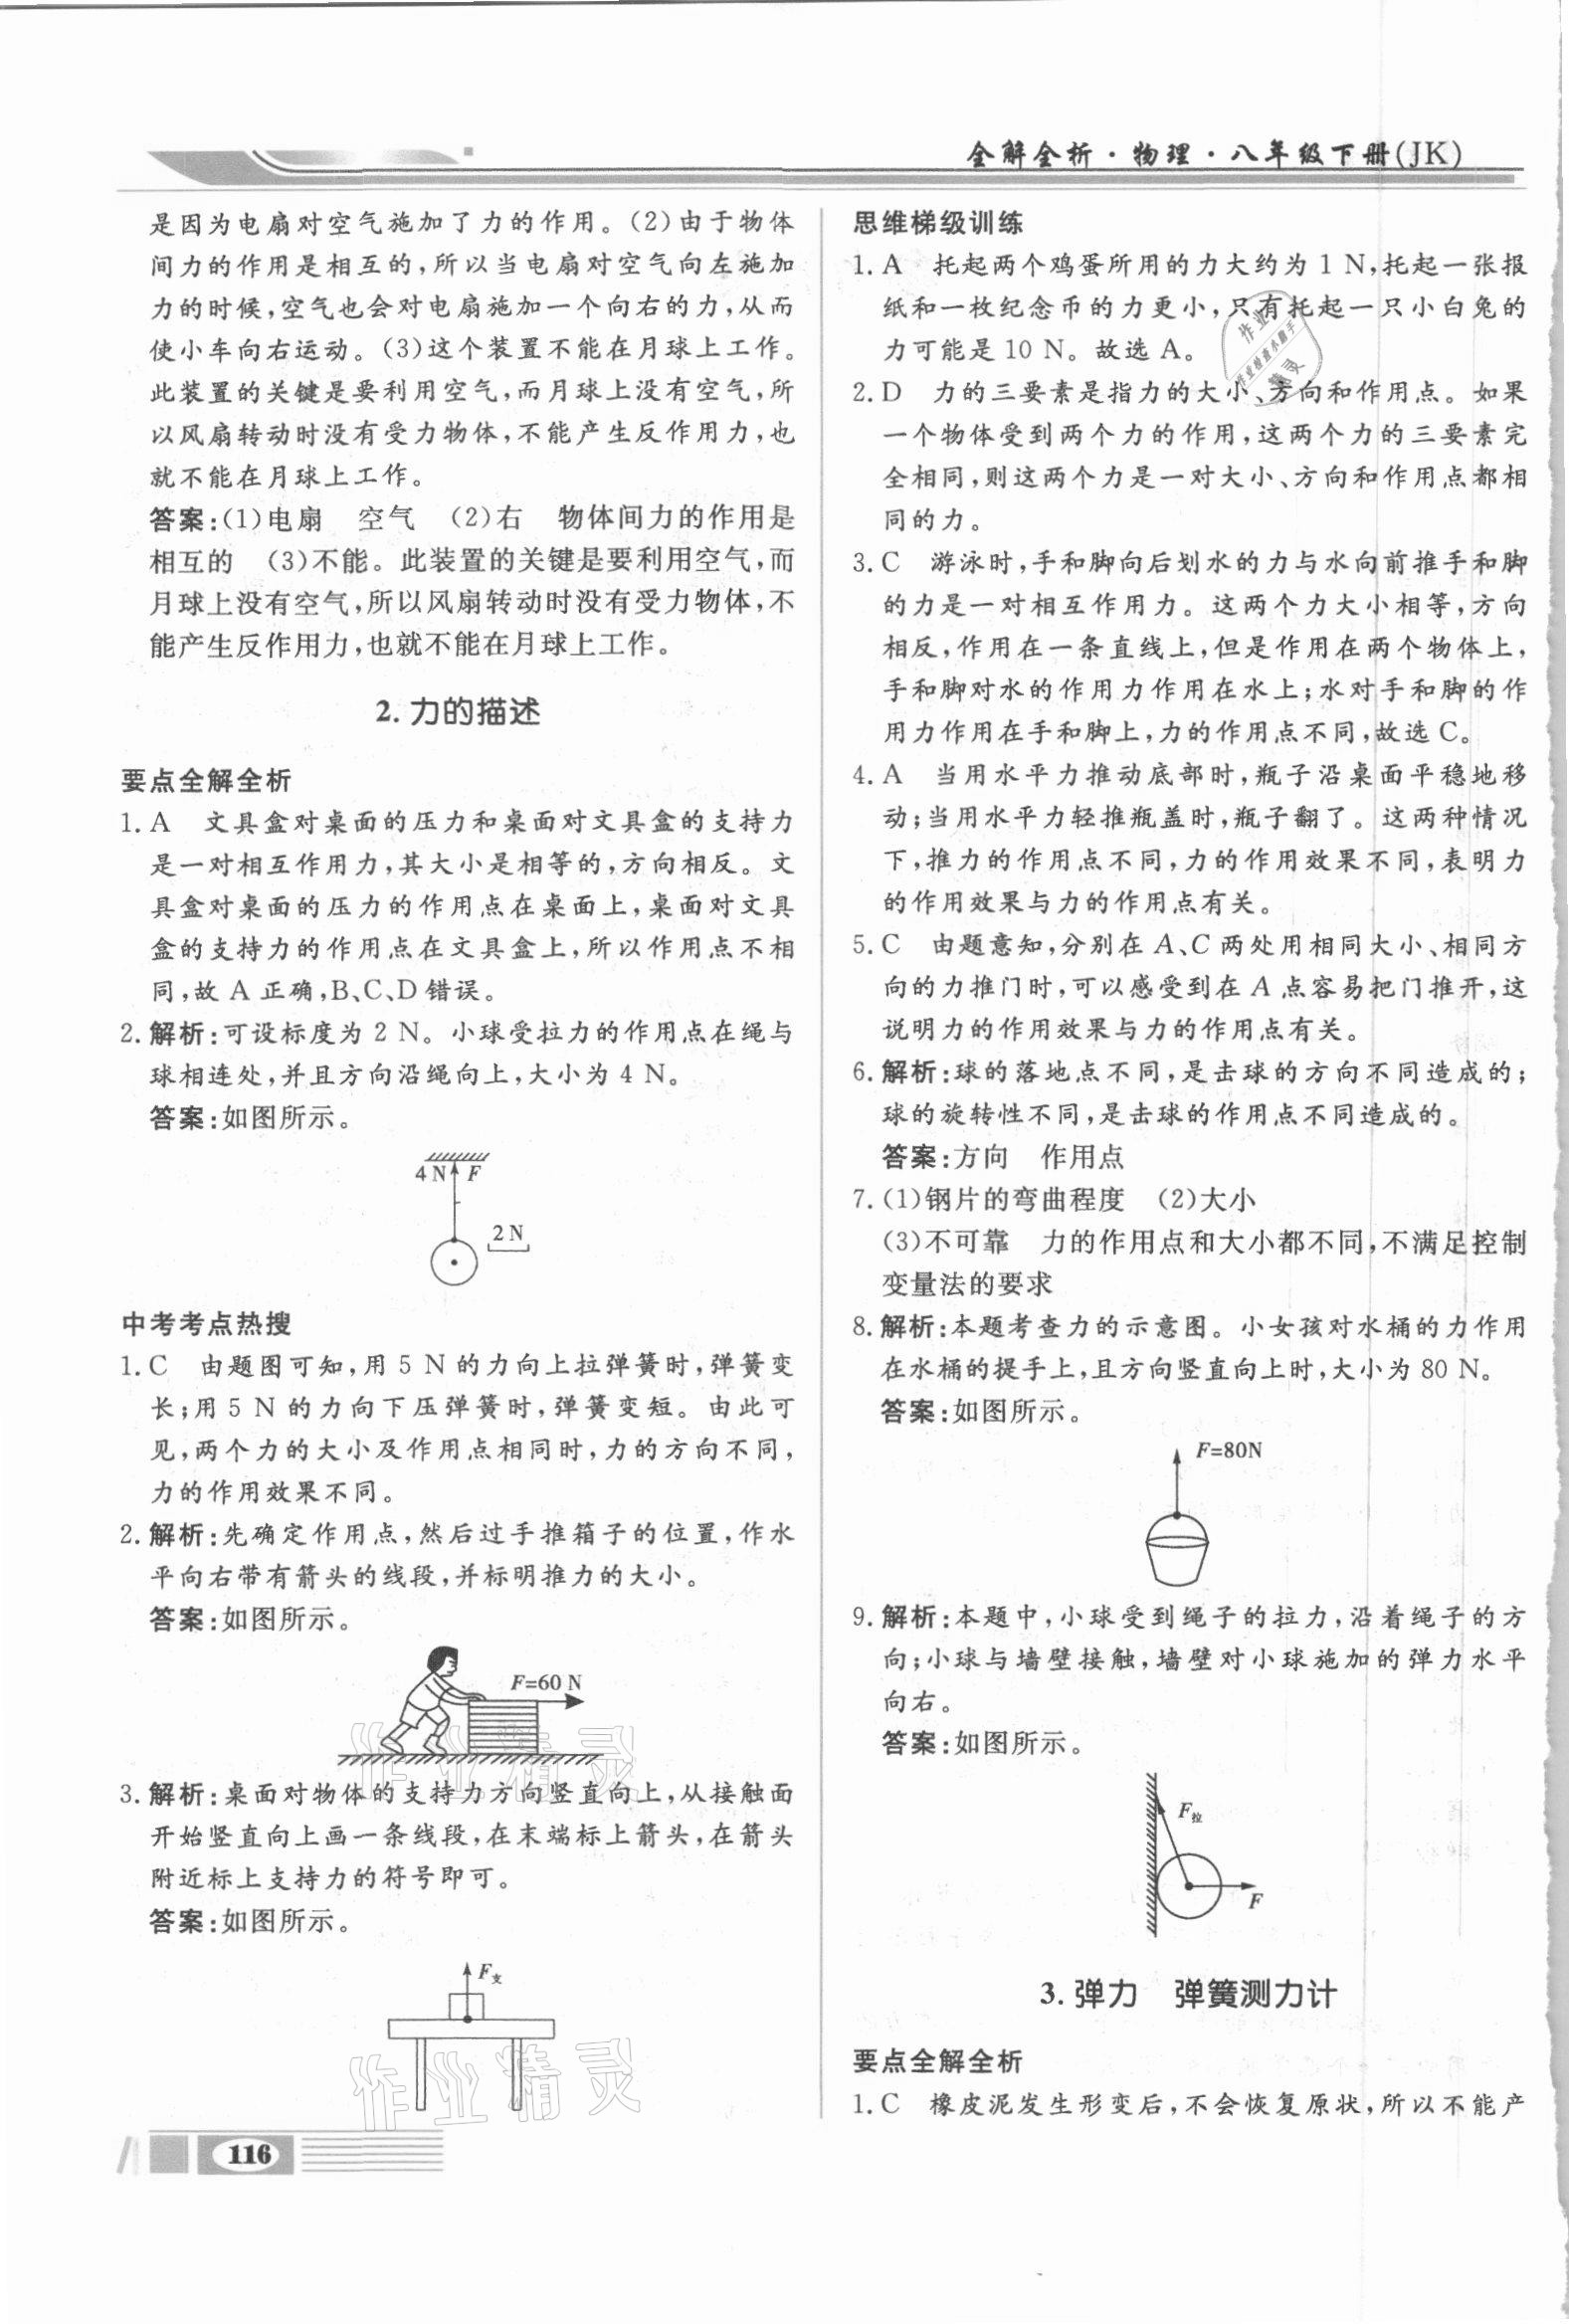 全解全析·物理·八年级下册(JK)
是因为电扇对空气施加了力的作用。(2)由于物体
间力的作用是相互的,所以当电扇对空气向左施加
力的时候,空气也会对电扇施加一个向右的力,从而
使小车向右运动。(3)这个装置不能在月球上工作。
此装置的关键是要利用空气,而月球上没有空气,所
以风扇转动时没有受力物体,不能产生反作用力,也
就不能在月球上工作。
答案:(1)电扇 空气 (2)右 物体间力的作用是
相互的 (3)不能。此装置的关键是要利用空气,而
月球上没有空气,所以风扇转动时没有受力物体,不
能产生反作用力,也就不能在月球上工作。
2. 力的描述
要点全解全析
1. A 文具盒对桌面的压力和桌面对文具盒的支持力
是一对相互作用力,其大小是相等的,方向相反。文
具盒对桌面的压力的作用点在桌面上,桌面对文具
盒的支持力的作用点在文具盒上,所以作用点不相
同,故 A 正确,B、C、D 错误。
2. 解析:可设标度为 2 N。小球受拉力的作用点在绳与
球相连处,并且方向沿绳向上,大小为 4 N。
答案:如图所示。
4 N F
2 N
中考考点热搜
1. C 由题图可知,用 5 N 的力向上拉弹簧时,弹簧变
长;用 5 N 的力向下压弹簧时,弹簧变短。由此可
见,两个力的大小及作用点相同时,力的方向不同,
力的作用效果不同。
2. 解析:先确定作用点,然后过手推箱子的位置,作水
平向右带有箭头的线段,并标明推力的大小。
答案:如图所示。
F=60 N
3. 解析:桌面对物体的支持力方向竖直向上,从接触面
开始竖直向上画一条线段,在末端标上箭头,在箭头
附近标上支持力的符号即可。
答案:如图所示。
F支
116
思维梯级训练
1. A 托起两个鸡蛋所用的力大约为 1 N,托起一张报
纸和一枚纪念币的力更小,只有托起一只小白兔的
力可能是 10 N。故选 A。
2. D 力的三要素是指力的大小、方向和作用点。如果
一个物体受到两个力的作用,这两个力的三要素完
全相同,则这两个力是一对大小、方向和作用点都相
同的力。
3. C 游泳时,手和脚向后划水的力与水向前推手和脚
的力是一对相互作用力。这两个力大小相等,方向
相反,作用在一条直线上,但是作用在两个物体上,
手和脚对水的作用力作用在水上;水对手和脚的作
用力作用在手和脚上,力的作用点不同,故选 C。
4. A 当用水平力推动底部时,瓶子沿桌面平稳地移
动;当用水平力轻推瓶盖时,瓶子翻了。这两种情况
下,推力的作用点不同,力的作用效果不同,表明力
的作用效果与力的作用点有关。
5. C 由题意知,分别在 A、C 两处用相同大小、相同方
向的力推门时,可以感受到在 A 点容易把门推开,这
说明力的作用效果与力的作用点有关。
6. 解析:球的落地点不同,是击球的方向不同造成的;
球的旋转性不同,是击球的作用点不同造成的。
答案:方向 作用点
7. (1)钢片的弯曲程度 (2)大小
(3)不可靠 力的作用点和大小都不同,不满足控制
变量法的要求
8. 解析:本题考查力的示意图。小女孩对水桶的力作用
在水桶的提手上,且方向竖直向上时,大小为 80 N。
答案:如图所示。
F=80N
9. 解析:本题中,小球受到绳子的拉力,沿着绳子的方
向;小球与墙壁接触,墙壁对小球施加的弹力水平
向右。
答案:如图所示。
F拉
F
3. 弹力 弹簧测力计
要点全解全析
1. C 橡皮泥发生形变后,不会恢复原状,所以不能产
作业精灵
作业精灵